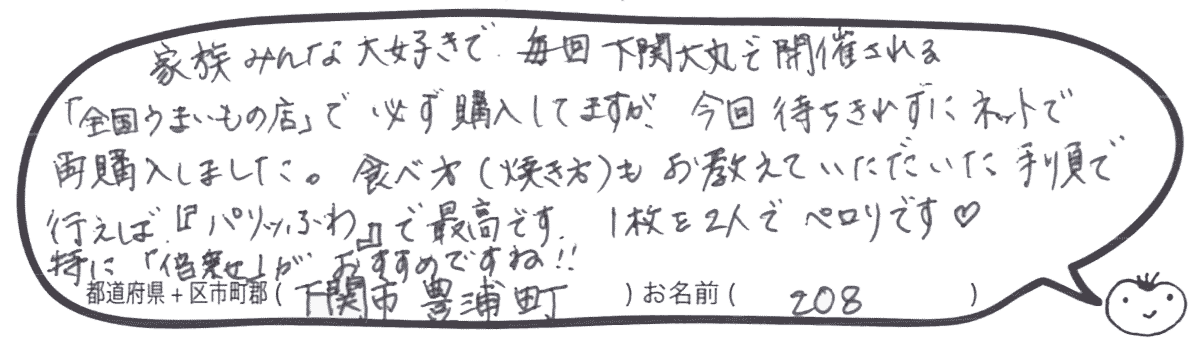 家族みんな大好きで、毎回下関大丸で開催される
「全国うまいもの店」で必ず購入してますが、今回待ちきれずにネットで
再購入しました。食べ方(焼き方)もお教えていただいた手順で
行えば、『パリッふわ』で最高です。1枚を2人でペロリです♡
特に「倍乗せ」がおすすめですね!!
都道府県+区市町郡(下関市豊浦町)お名前(208)